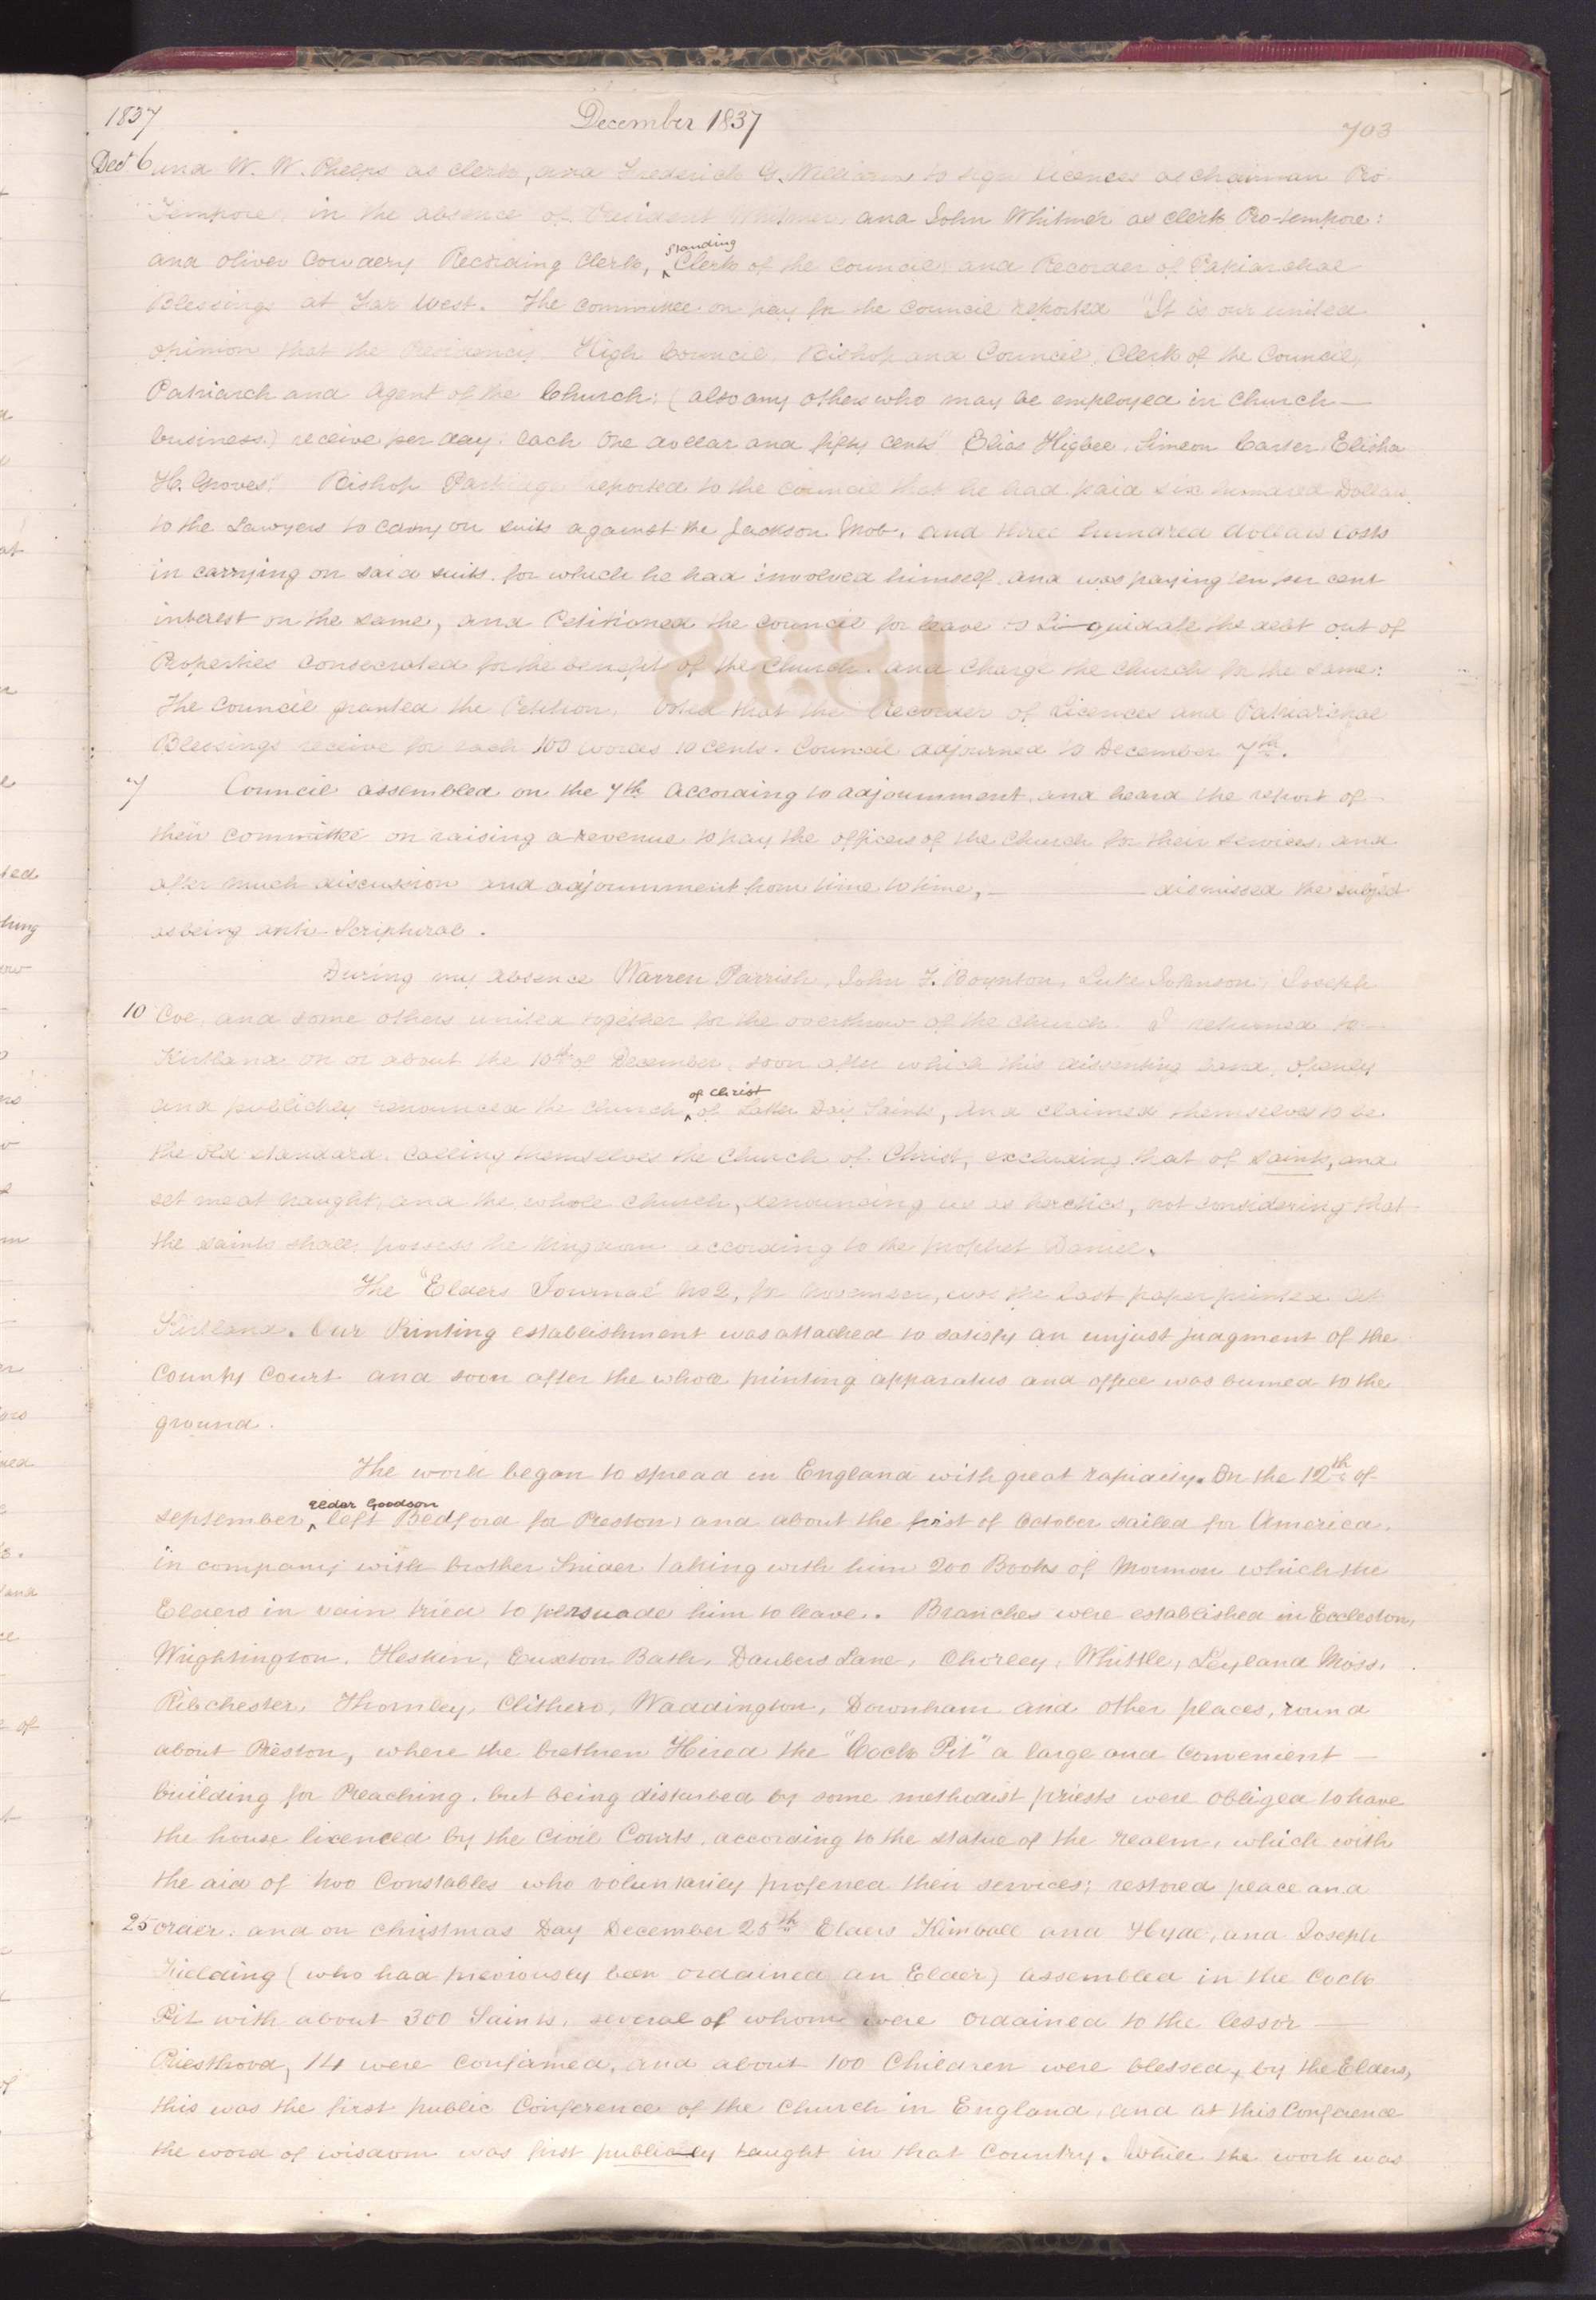 1837
December 1837
703
Dec.r 6 and W. W. Phelps as clerk, and Frederick G. Williams to sign licences as chairman Pro
Tempore, in the absence of President Whitmer, and John Whitmer as clerk Pro-tempore:
and Oliver Cowdery Recording Clerk, ^Standing Clerk of the council, and Recorder of Patriarchal
Blessings at Far West. The committee on pay for the council reported "It is our united
opinion that the Presidency, High Council, Bishop and Council, Clerk of the Council,
Patriarch and Agent of the Church; (also any others who may be employed in Church —
business) receive per day: each One dollar and fifty cents" Elias Higbee, Simeon Carter, Elisha
H. Groves." Bishop Partridge reported to the council that he had paid six hundred Dollars
to the Lawyers to carry on suits against the Jackson Mob, and three hundred dollars costs
in carrying on said suits, for which he had involved himself, and was paying ten per cent
interest on the same, and Petitioned the council for leave to Li-quidate the debt out of
Properties consecrated for the benefit of the Church, and charge the church for the same:
The Council granted the Petition. Voted that the Recorder of Licences and Patriarchal
Blessings receive for each 100 words 10 cents. Council adjourned to December 7th.
7 Council assembled on the 7th according to adjournment, and heard the report of
their committee on raising a revenue to pay the officers of the church for their services, and
after much discussion and adjournment from time to time, — dismissed the subject
as being anti-Scriptural.
During my absence Warren Parrish, John F. Boynton, Luke Johnson, Joseph
10 Coe, and some others united together for the overthrow of the church. I returned to
Kirtland on or about the 10th of December, soon after which this dissenting band, openly
and publickly renounced the church ^of Christ of Latter Day Saints, and claimed themselves to be
the old standard, calling themselves the Church of Christ, excluding that of saints, and
set me at naught, and the whole church, denouncing us as heretics, not considering that
the saints shall possess the kingdom according to the prophet Daniel.
The "Elders Journal" No 2, for November, was the last paper printed at
Kirtland. Our Printing establishment was attached to satisfy an unjust judgment of the
County Court and soon after the whole printing apparatus and office was burned to the
ground.
The work began to spread in England with great rapidity. On the 12th of
september, ^elder Goodson left Bedford for Preston, and about the first of October sailed for America,
in company with brother Snider taking with him 200 Books of Mormon which the
Elders in vain tried to persuade him to leave. Branches were established in Eccleston,
Wrightington, Heskin, Euxton Bath, Daubers Lane, Chorley, Whittle, Leyland Moss,
Ribchester, Thornley, Clithero, Waddington, Downham and other places, round
about Preston, where the brethren Hired the "Cock Pit" a large and convenient —
building for Preaching, but being disturbed by some methodist priests were obliged to have
the house licenced by the Civil Courts, according to the statue of the realm, which with
the aid of two Constables who voluntarily profered their services; restored peace and
25 order: and on christmas Day December 25th Elders Kimball and Hyde, and Joseph
Fielding (who had previously been ordained an Elder) assembled in the Cock
Pit with about 300 Saints, several of whom were ordained to the lessor —
Priesthood, 14 were confirmed, and about 100 Children were blessed, by the Elders,
this was the first public Conference of the church in England, and at this Conference
the word of wisdom was first publicly taught in that Country. While the work was